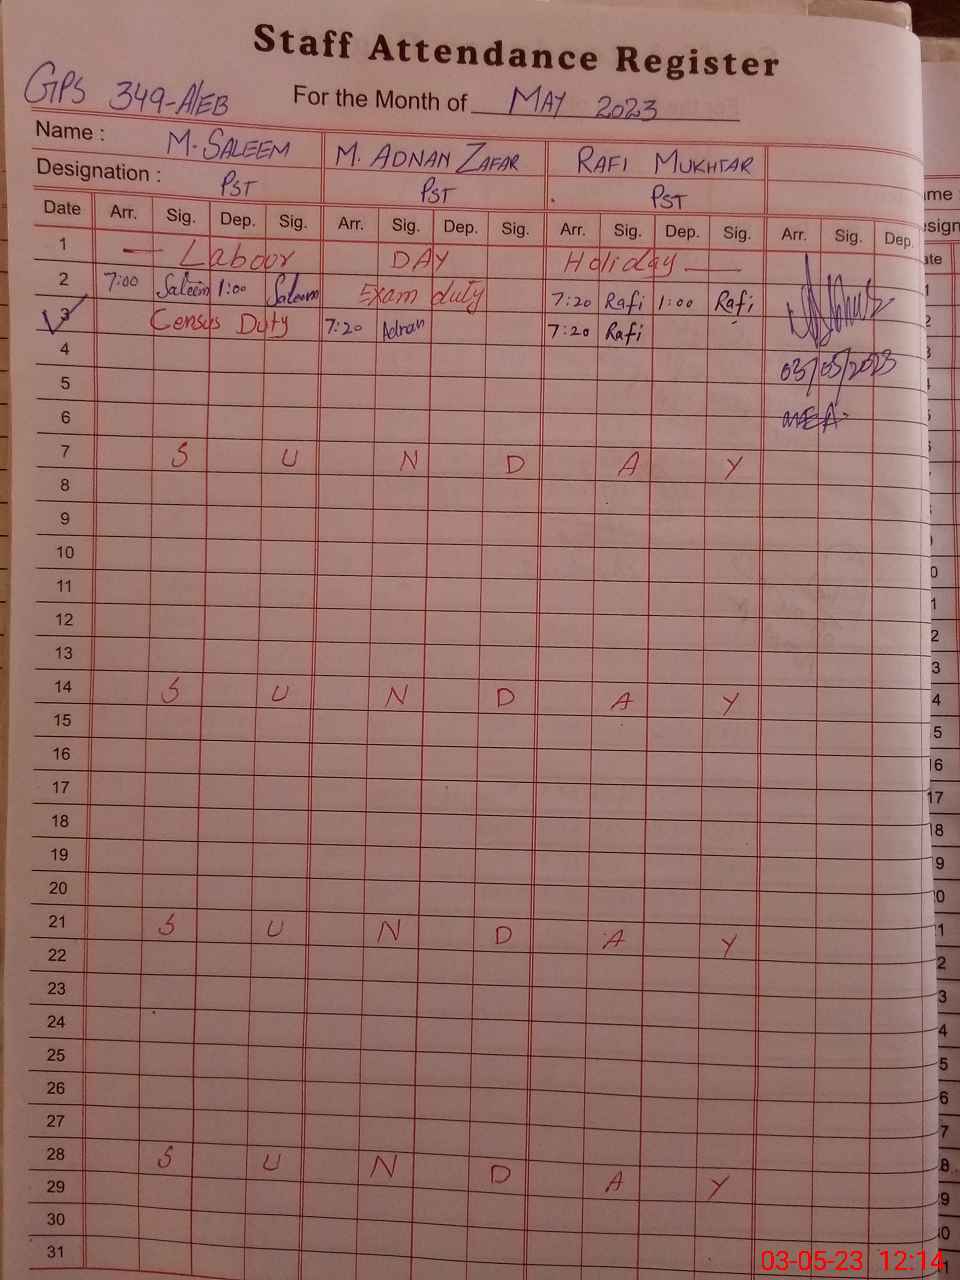 Staff Attendance Register
GPS 349-A/EB For the Month of MAY 2023
Name : M. SALEEM M. ADNAN ZAFAR RAFI MUKHTAR
Designation : PST PST PST
Date Arr. Sig. Dep. Sig. Arr. Sig. Dep. Sig. Arr. Sig. Dep. Sig. Arr. Sig. Dep.
1 — Labour DAY Holiday —
2 7:00 Saleem 1:00 Saleem Exam duty 7:20 Rafi 1:00 Rafi
3 Census Duty 7:20 Adnan 7:20 Rafi
4 03/05/2023
5
6
7 S U N D A Y
8
9
10
11
12
13
14 S U N D A Y
15
16
17
18
19
20
21 S U N D A Y
22
23
24
25
26
27
28 S U N D A Y
29
30
31
03-05-23 12:14